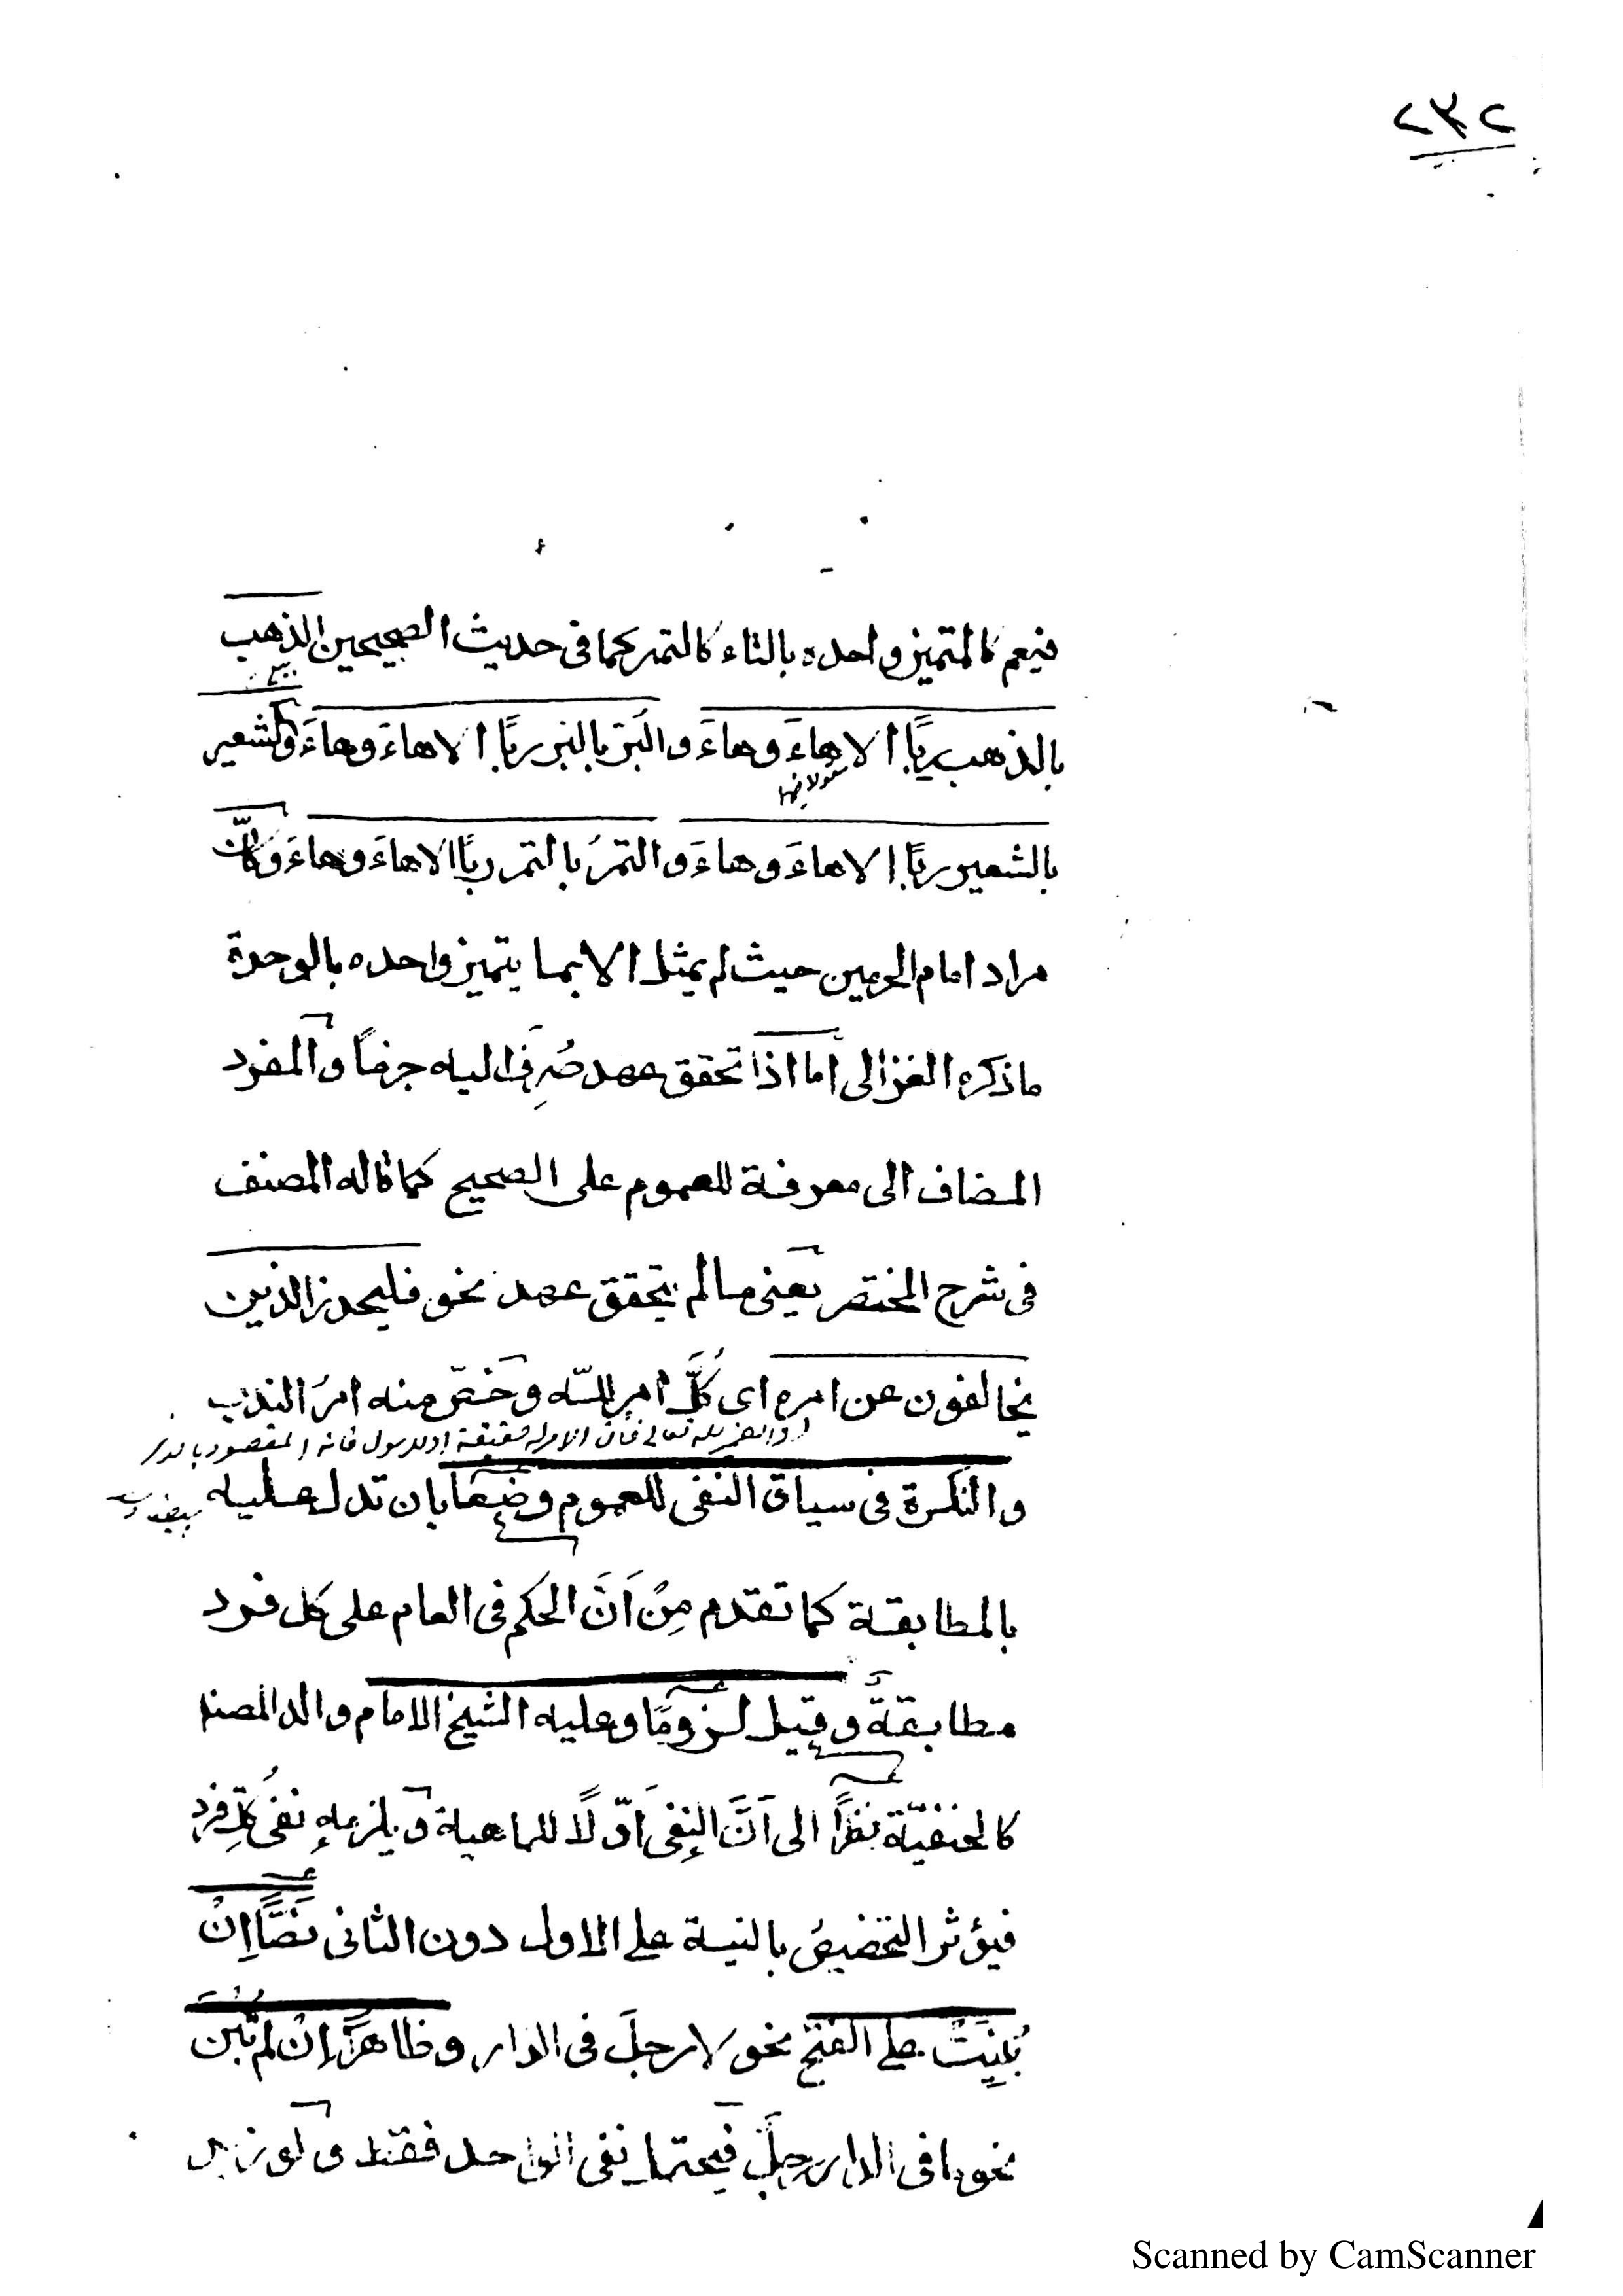 ٢٣٢
فيعم كالمتميز واحده بالتاء كالتمر كما فى حديث الصحيحين الذهب
بالذهب ربًا الا هاءَ وهاءَ والبُرّ بالبر ربًا الا هاءَ وهاءَ والشعير
بالشعير ربًا الا هاءَ وهاءَ والتمرُ بالتمر ربًا الا هاءَ وهاءَ وكانّ
مراد امام الحرمين حيث لم يمثل الا بما يتميز واحده بالوحدة
ما ذكره الغزالى أما اذا تحقق عهد صُرِفَ اليه جزمًا والمفرد
المضاف الى معرفة للعموم على الصحيح كما قاله المصنف
فى شرح المختصر يعنى ما لم يتحقق عهد نحو فليحذر الذين
يخالفون عن امره اى كُلَّ امر للّه وخُصّ منه امرُ الندب
والنكرة فى سياق النفى للعموم وضعًا بان تدل عليه
بالمطابقة كما تقدم مِنْ اَنَّ الحكم فى العام على كل فرد
مطابقةً وقيل لزومًا وعليه الشيخ الامام والد المصنف
كالحنفيّة نظرًا الى اَنَّ النفىَ اوّلًا للماهية ويلزمه نفىُ كلِّ فردٍ
فيؤثر التخصيصُ بالنية على الاول دون الثانى نَصًّا اِنْ
بُنِيَتْ على الفتح نحو لا رجلَ فى الدار وظاهرًا اِنْ لم تُبْنَ
نحو ما فى الدار رجلٌ فيحتمل نفى الواحد فقط ولو زيد
Scanned by CamScanner